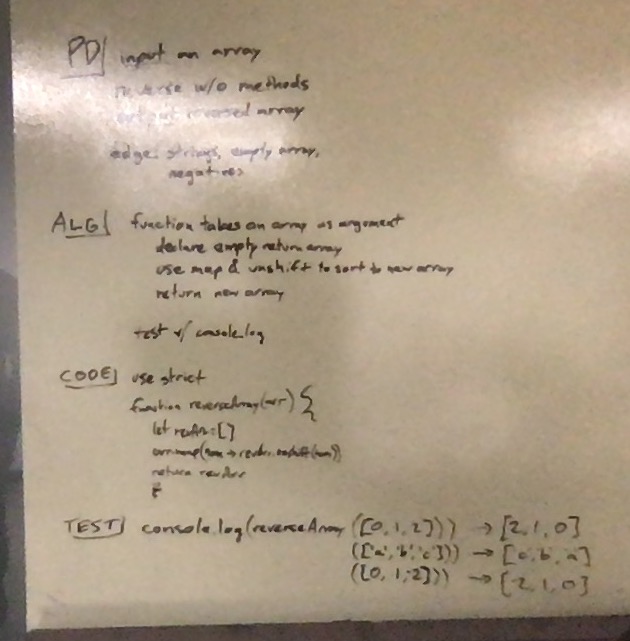 PD| input an array
reverse w/o methods
output reversed array
edge: strings, empty array,
negatives
ALG| function takes an array as argument
declare empty return array
use map & unshift to sort to new array
return new array
test w/ console.log
CODE| use strict
function reverseArray(arr) {
let revArr=[]
arr.map(num → revArr.unshift(num))
return revArr
}
TEST| console.log(reverseArray([0,1,2])) → [2,1,0]
(['a','b','c'])) → [c,b,a]
([0,1,-2])) → [-2,1,0]